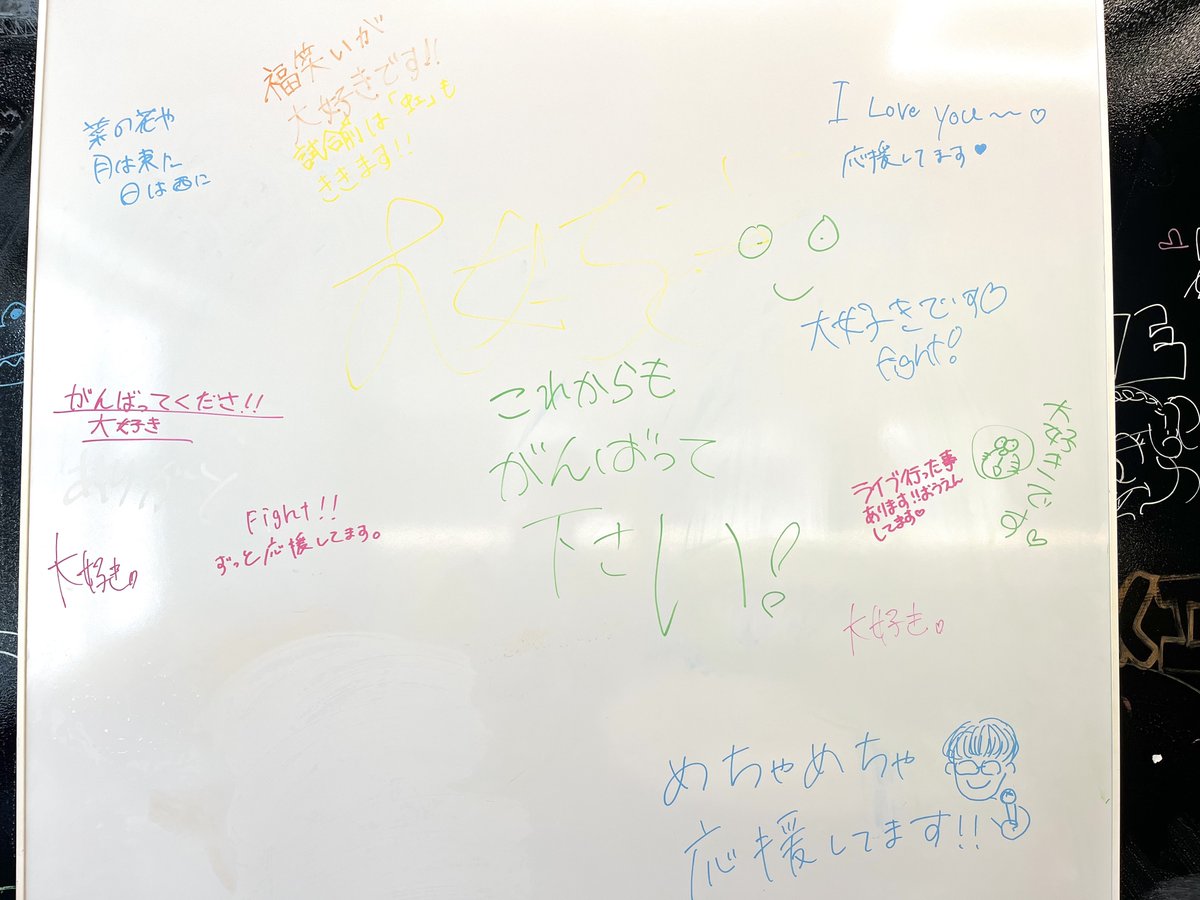 福笑いが
大好きです!!
試合前は「虹」も
ききます!!
菜の花や
月は東に
日は西に
I Love you〜♡
応援してます♥
大好きです♡
Fight!
これからも
がんばって
下さい!
がんばってくださ!!
大好き
大好き♡
Fight!!
ずっと応援してます。
ライブ行った事
あります!!おうえん
してます♡
大好きです♡
大好き♡
めちゃめちゃ
応援してます!!